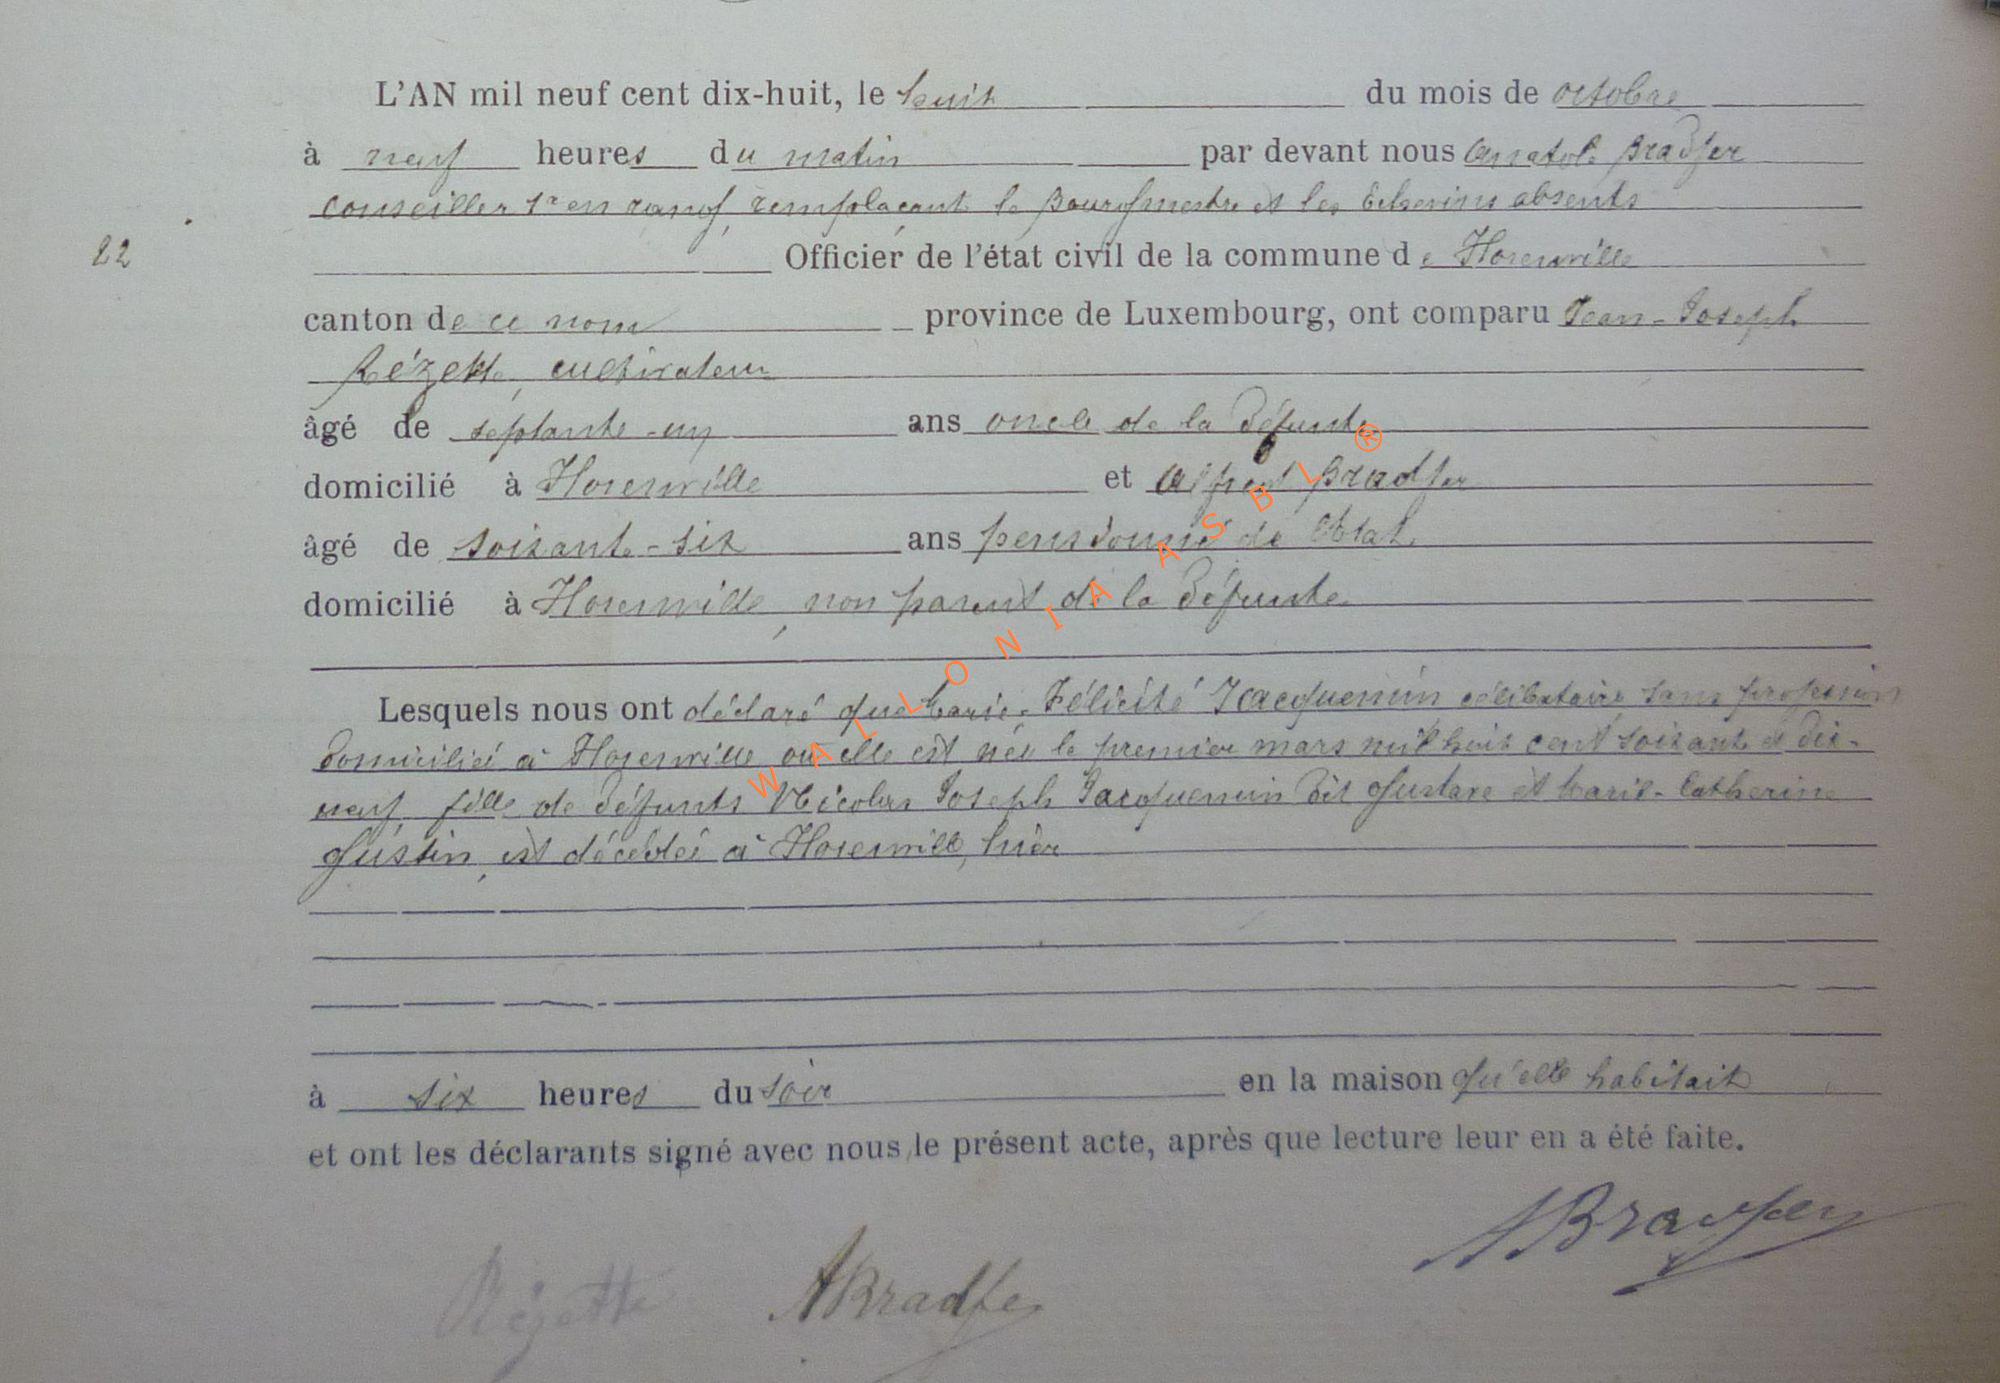 L'AN mil neuf cent dix-huit, le huit du mois de octobre
à neuf heures du matin par devant nous Anatole Bradfer
conseiller 1r en rang, remplaçant le Bourgmestre et les Echevins absents
22
Officier de l'état civil de la commune de Florenville
canton de ce nom province de Luxembourg, ont comparu Jean-Joseph
Rézette, cultivateur
âgé de septante-un ans oncle de la défunte
domicilié à Florenville et Alfred Bradfer
âgé de soixante-six ans pensionné de l'Etat
domicilié à Florenville, non parent de la défunte.
Lesquels nous ont déclaré que Marie-Félicité Jacquemin célibataire sans profession
domiciliée à Florenville où elle est née le premier mars mil huit cent soixante et dix-
neuf fille de défunts Nicolas Joseph Jacquemin dit Gustave et Marie-Catherine
Gustin, est décédée à Florenville, hier
à six heures du soir en la maison qu'elle habitait
et ont les déclarants signé avec nous le présent acte, après que lecture leur en a été faite.
ABradfer
Rézette ABradfer
WALLONIA ASBL ®